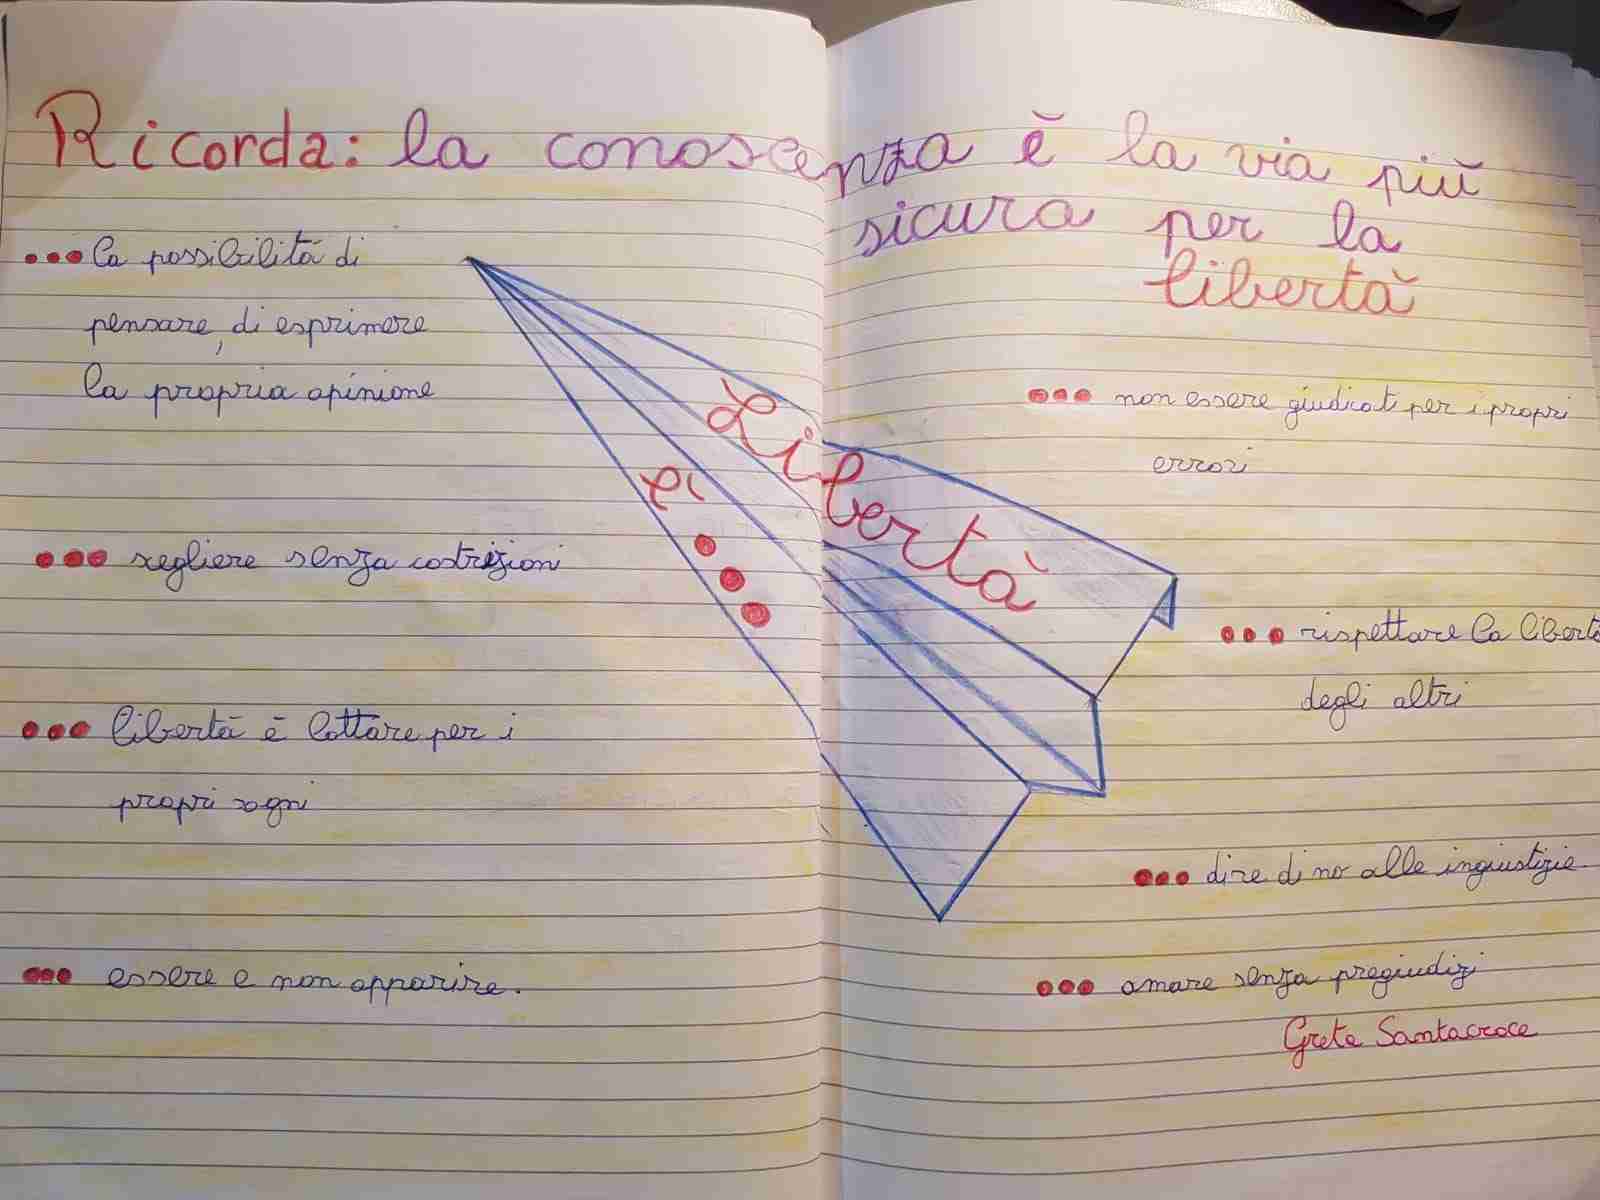 Ricorda: la conoscenza è la via più
sicura per la
libertà
...la possibilità di
pensare, di esprimere
la propria opinione
... scegliere senza costrizioni
... libertà è lottare per i
propri sogni
... essere e non apparire.
Libertà
è
...
... non essere giudicati per i propri
errori
... rispettare la libertà
degli altri
... dire di no alle ingiustizie.
... amare senza pregiudizi
Greta Santacroce